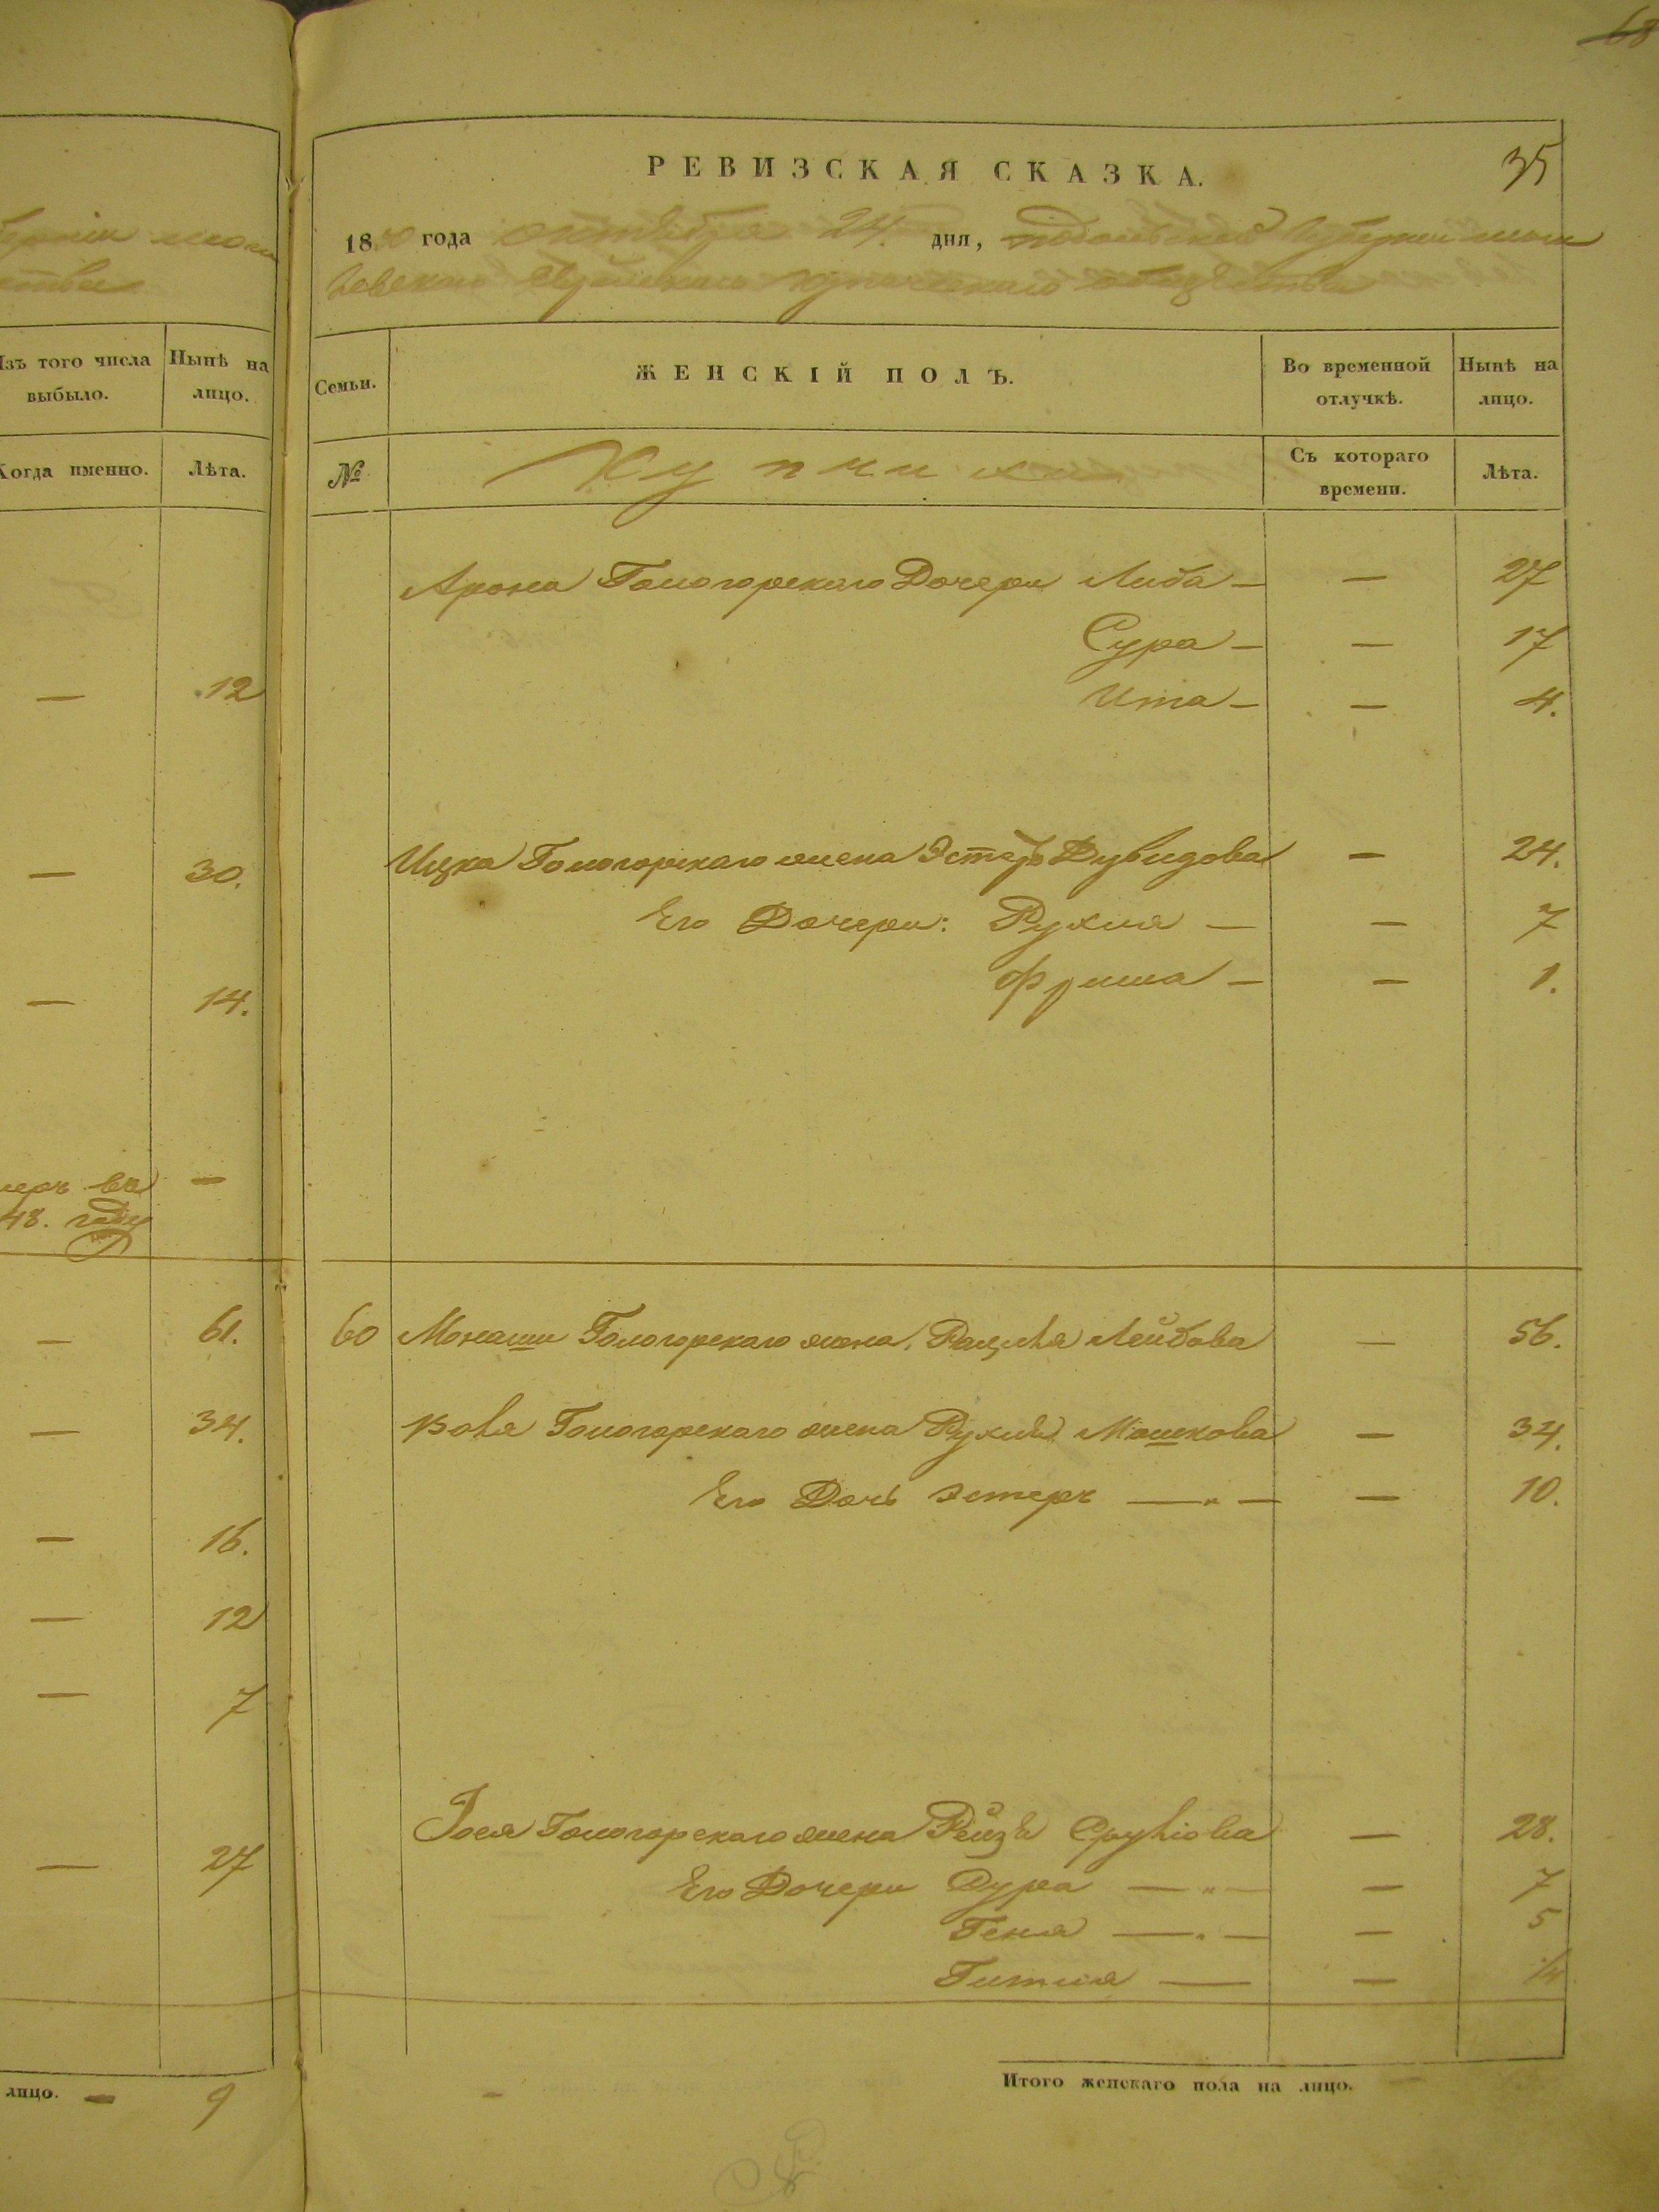 68
РЕВИЗСКАЯ СКАЗКА.
35
1850 года октября 24. дня, Подольской Губернии моги
левского Еврейскаго купеческаго общества
Изъ того числа
выбыло.
Нынѣ на
лицо.
Когда именно.
Лѣта.
Семьи.
ЖЕНСКІЙ ПОЛЪ.
Во временной
отлучкѣ.
Нынѣ на
лицо.
№
Купчихи
Съ котораго
времени.
Лѣта.
Арона Гологорскаго Дочери Либа — — 27
Сура — — 17
— 12
Ита — — 4.
— 30.
Ицка Гологорскаго жена Эстеръ Дувидова — 24.
Его Дочери: Рухля — — 7
— 14.
Фрима — — 1.
въ —
48. году
— 61.
60 Монаши Гологорскаго жена, Рацля Лейбова — 56.
— 34.
Вовя Гологорскаго жена Рухля Мошкова — 34.
Его Дочь Эстеръ — „ — — 10.
— 16.
— 12
— 7
— 27
Іося Гологорскаго жена Рейзя Сруліова — 28.
Его Дочери Сура — „ — — 7
Геня — „ — — 5
Гитля — — 1/4
лицо. — 9
Итого женскаго пола на лицо.